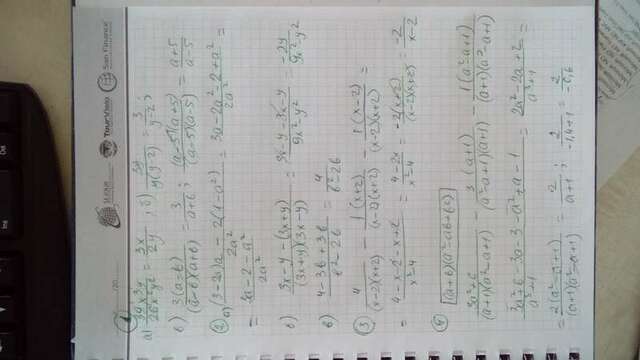 San Finance
TourVision
①
а) 39x³y / 26x²y² = 3x / 2y ; б) 5y / y(y-2) = 5 / y-2 ;
в) 3(a-b) / (a-b)(a+b) = 3 / a+b ; (a-5)(a+5) / (a-5)(a-5) = a+5 / a-5
② а) (3-2a)a - 2(1-a²) / 2a² = 3a-2a²-2+a² / 2a² =
= 3a-2-a² / 2a²
б) 3x-y-(3x+y) / (3x+y)(3x-y) = 3x-y-3x-y / 9x²-y² = -2y / 9x²-y²
в) 4-3b+3b / b²-2b = 4 / b²-2b
③ 4 / (x-2)(x+2) - 1(x+2) / (x-2)(x+2) - 1(x-2) / (x-2)(x+2) =
= 4-x-2-x+2 / x²-4 = 4-2x / x²-4 = -2(x+2) / (x-2)(x+2) = -2 / x-2
④ (a+b)(a²-ab+b²)
3a²+6 / (a+1)(a²-a+1) - 3(a+1) / (a²-a+1)(a+1) - 1(a²-a+1) / (a+1)(a²-a+1)
3a²+6-3a-3-a²+a-1 / a³+1 = 2a²-2a+2 / a³+1 =
= 2(a²-a+1) / (a+1)(a²-a+1) = 2 / a+1 ; 2 / -1,4+1 = 2 / -0,6